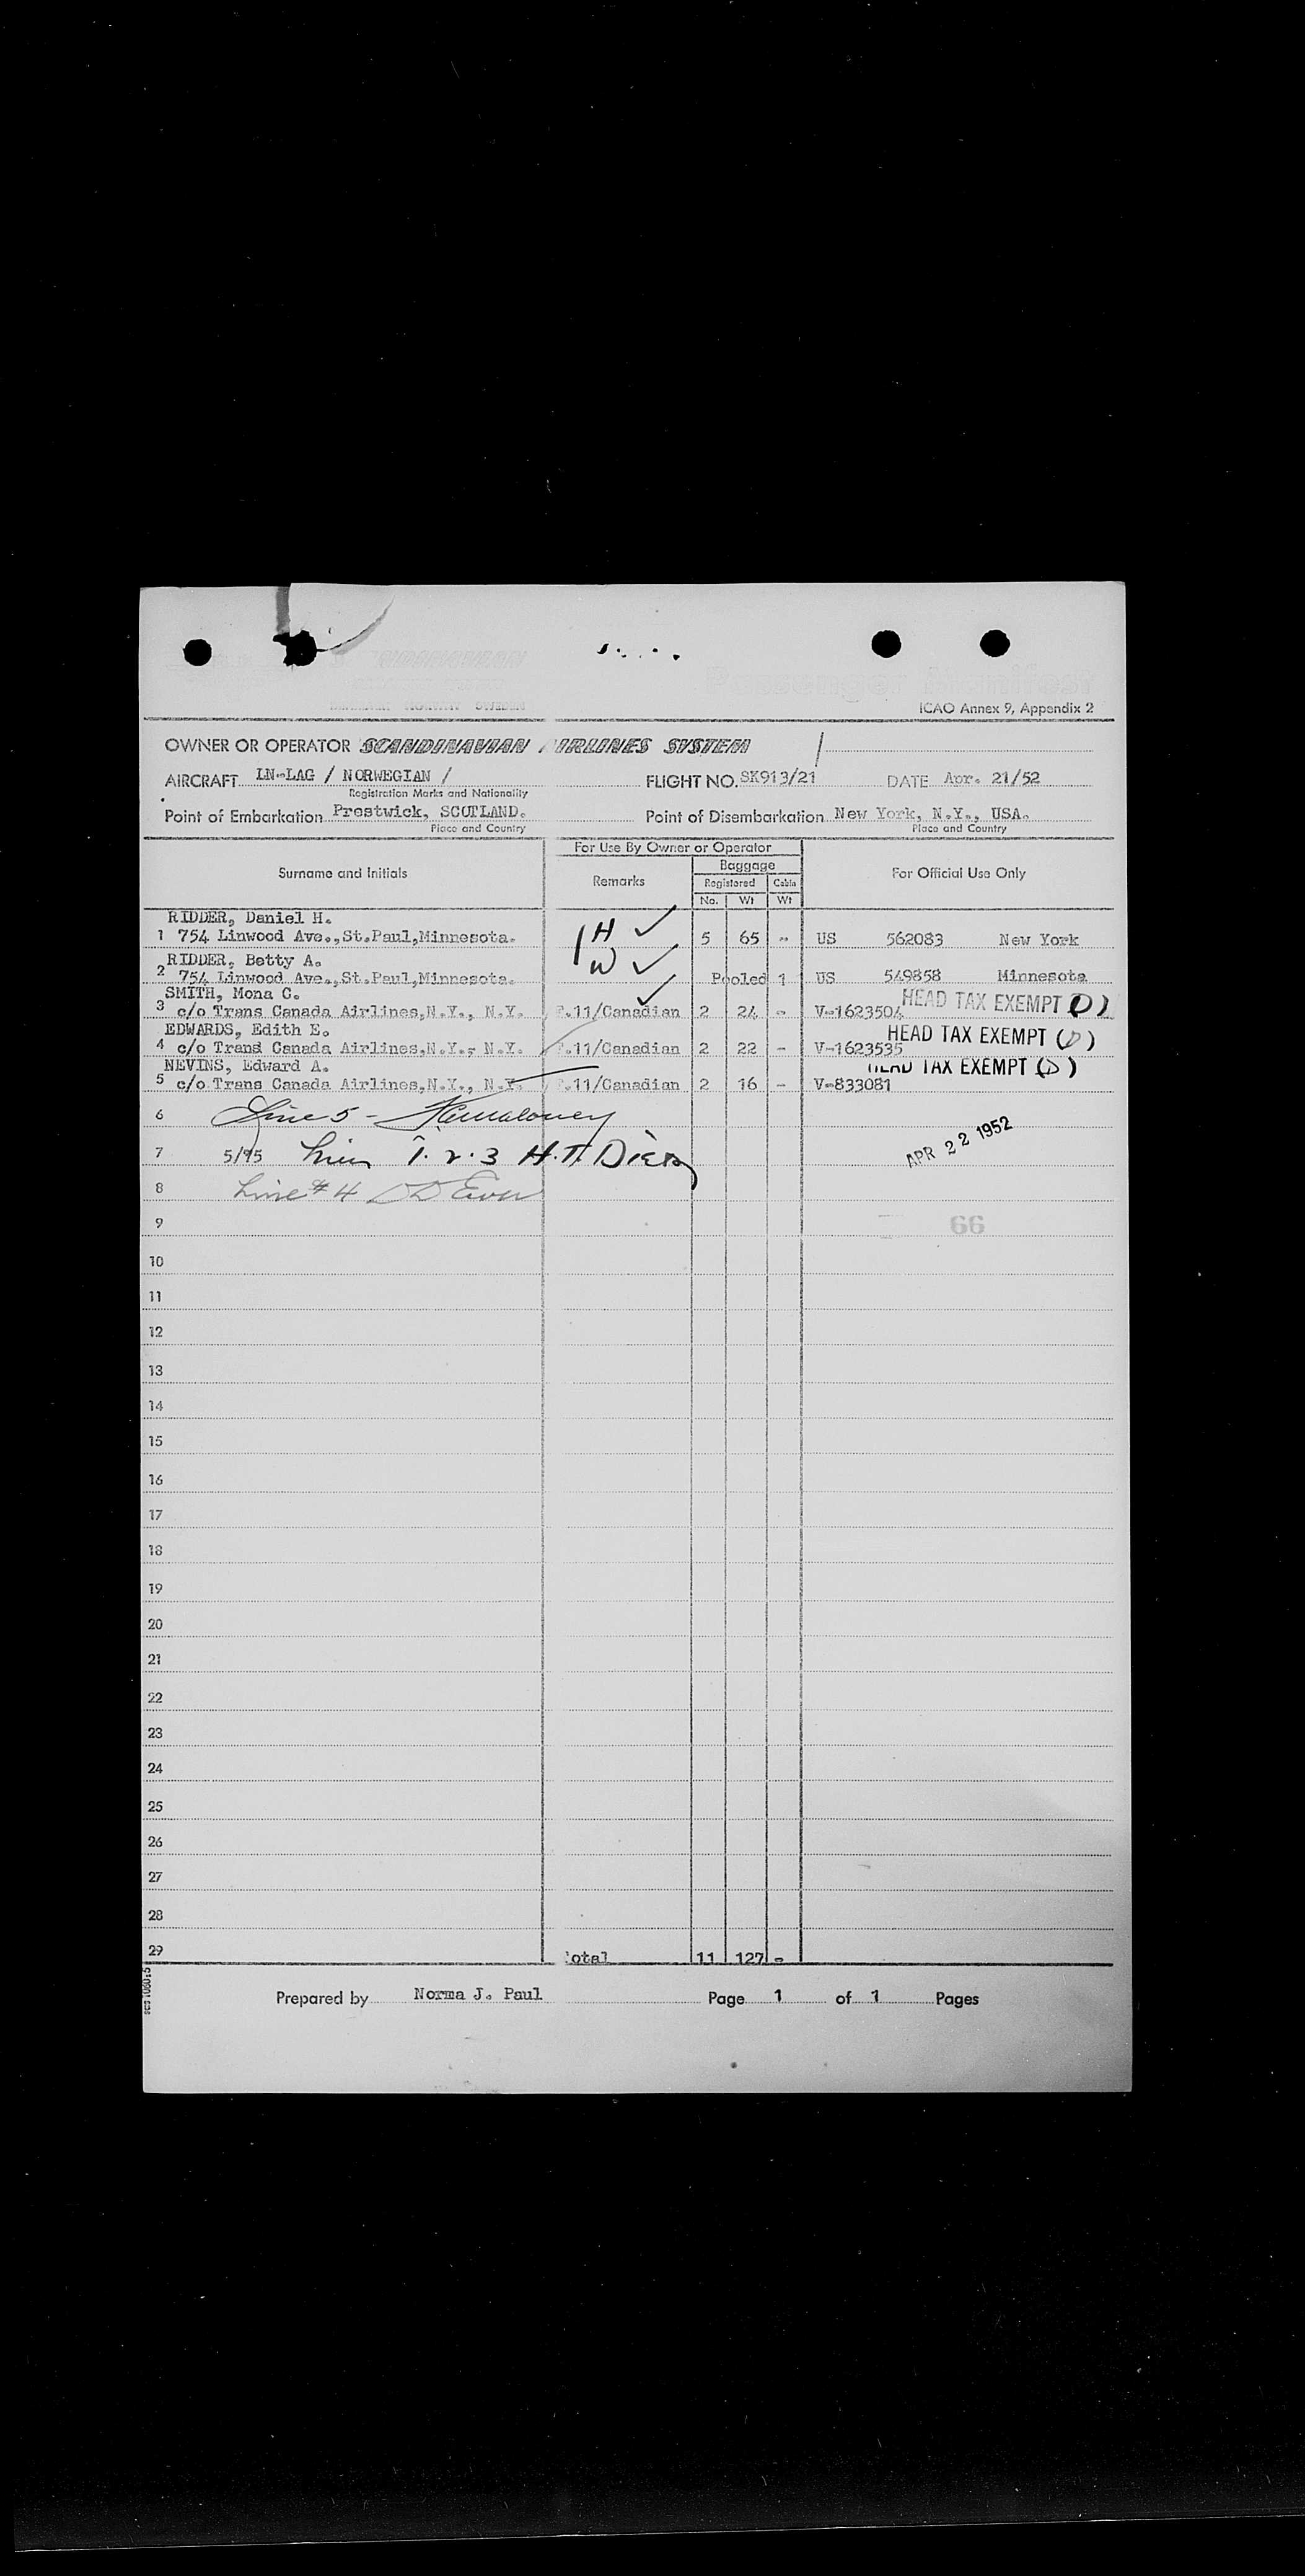 Passenger Manifest
ICAO Annex 9, Appendix 2
OWNER OR OPERATOR SCANDINAVIAN AIRLINES SYSTEM
AIRCRAFT LN-LAG / NORWEGIAN / FLIGHT NO. SK913/21 DATE Apr. 21/52
Registration Marks and Nationality
Point of Embarkation Prestwick, SCOTLAND. Point of Disembarkation New York, N.Y., USA.
Place and Country Place and Country
For Use By Owner or Operator
Surname and Initials Remarks Baggage For Official Use Only
Registered Cabin
No. Wt Wt
RIDDER, Daniel H.
1 754 Linwood Ave.,St.Paul,Minnesota. 1 H 5 65 - US 562083 New York
RIDDER, Betty A.
2 754 Linwood Ave.,St.Paul,Minnesota. W Pooled 1 US 549858 Minnesota
SMITH, Mona C. HEAD TAX EXEMPT (D)
3 c/o Trans Canada Airlines,N.Y., N.Y. P.11/Canadian 2 24 - V-1623504
EDWARDS, Edith E. HEAD TAX EXEMPT (D)
4 c/o Trans Canada Airlines,N.Y.- N.Y. P.11/Canadian 2 22 - V-1623535
NEVINS, Edward A. HEAD TAX EXEMPT (D)
5 c/o Trans Canada Airlines,N.Y., N.Y. P.11/Canadian 2 16 - V-833081
6 Line 5 -
7 5/95 1.2.3 H.T. APR 22 1952
8 Line # 4
9 66
10
11
12
13
14
15
16
17
18
19
20
21
22
23
24
25
26
27
28
29 Total 11 127 -
Prepared by Norma J. Paul Page 1 of 1 Pages